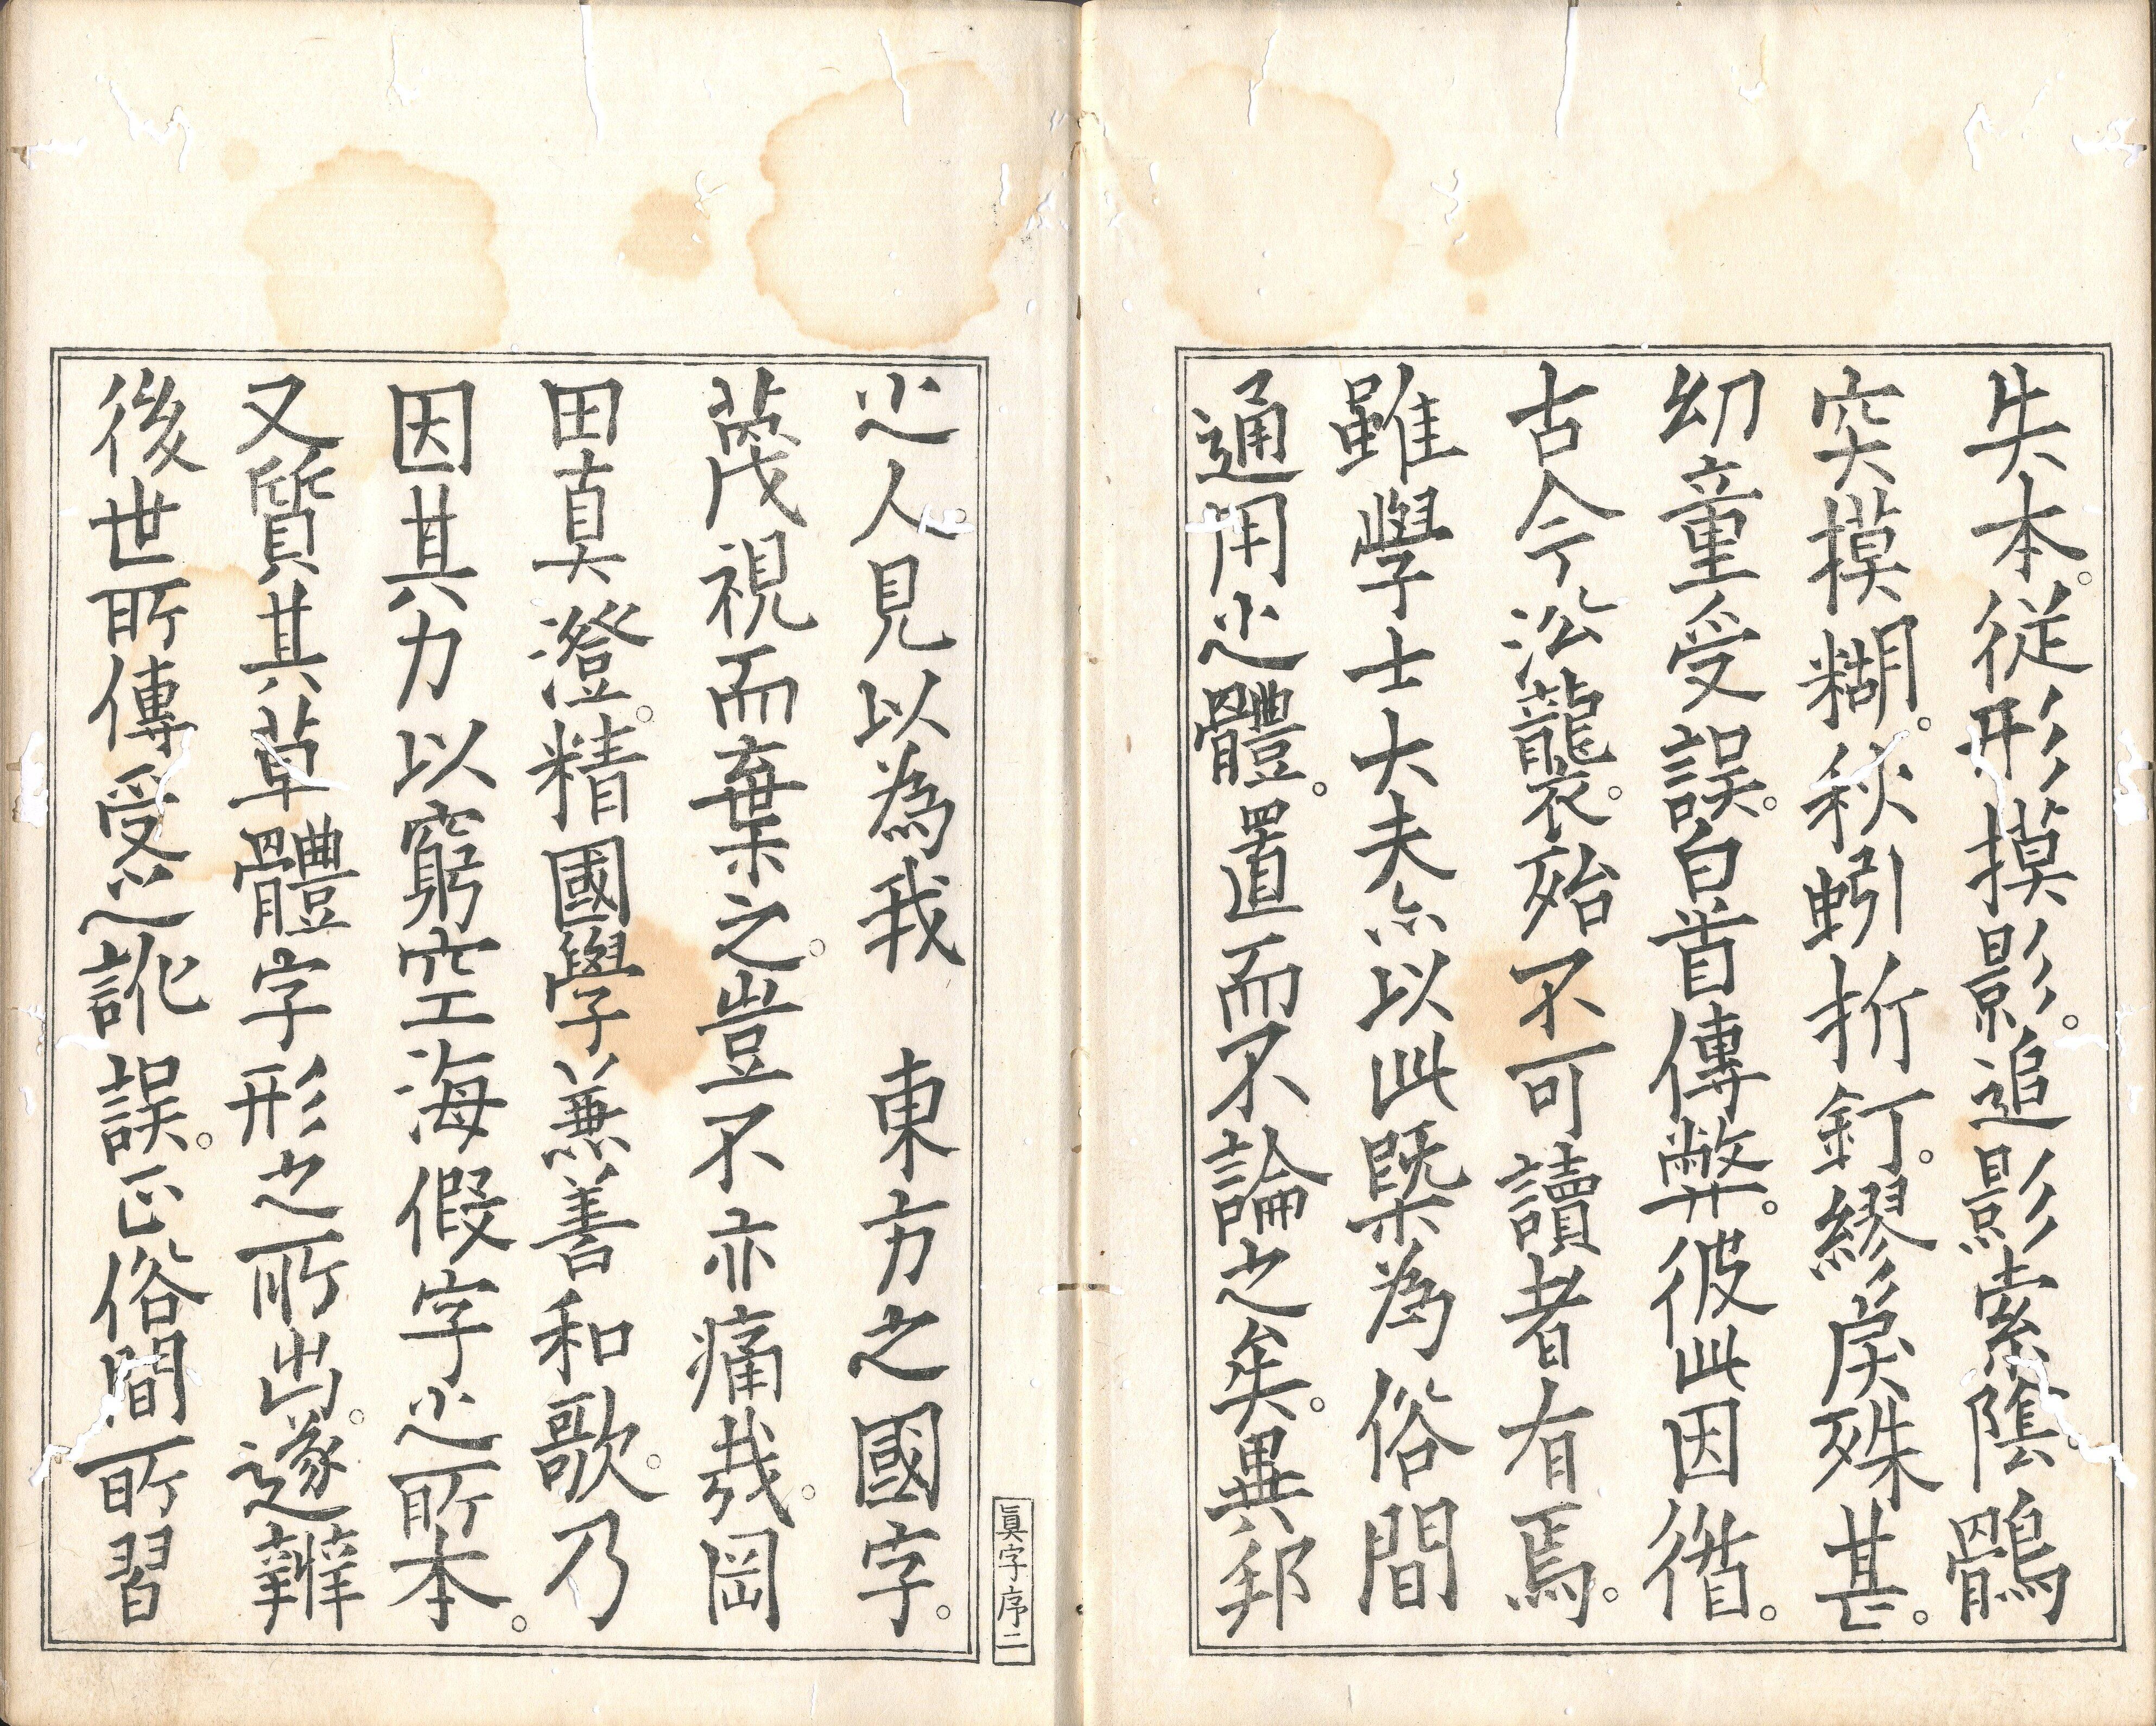 失本。従形摸影。追影索陰。鶻
突摸糊。秋蚓折釘。繆戻殊甚。
幼童受誤。白首傳弊。彼此因循。
古今㳂襲。殆不可讀者有焉。
雖學士大夫亦以此槩為俗間
通用之體。置而不論之矣。異邦
之人見以為我　東方之國字。
蔑視而棄之。豈不亦痛哉。岡
田真澄。精國學兼善和歌。乃
因其力以窮空海假字之所本。
又質其草體字形之所出。遂辨
後世所傳受之訛誤。正俗間所習
眞字序二